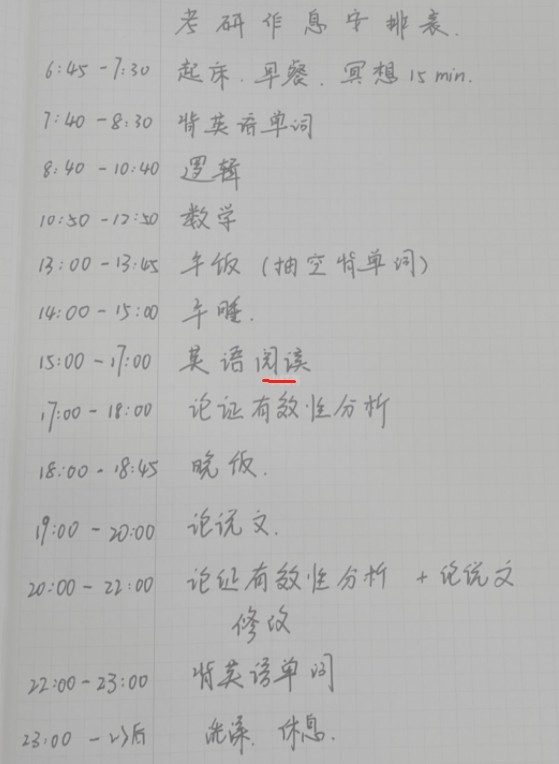 考研作息安排表.
6:45-7:30 起床.早餐.冥想15min.
7:40-8:30 背英语单词
8:40-10:40 逻辑
10:50-12:50 数学
13:00-13:45 午饭(抽空背单词)
14:00-15:00 午睡.
15:00-17:00 英语阅读
17:00-18:00 论证有效性分析
18:00-18:45 晚饭.
19:00-20:00 论说文.
20:00-22:00 论证有效性分析+论说文
修改
22:00-23:00 背英语单词
23:00-以后 洗澡.休息.